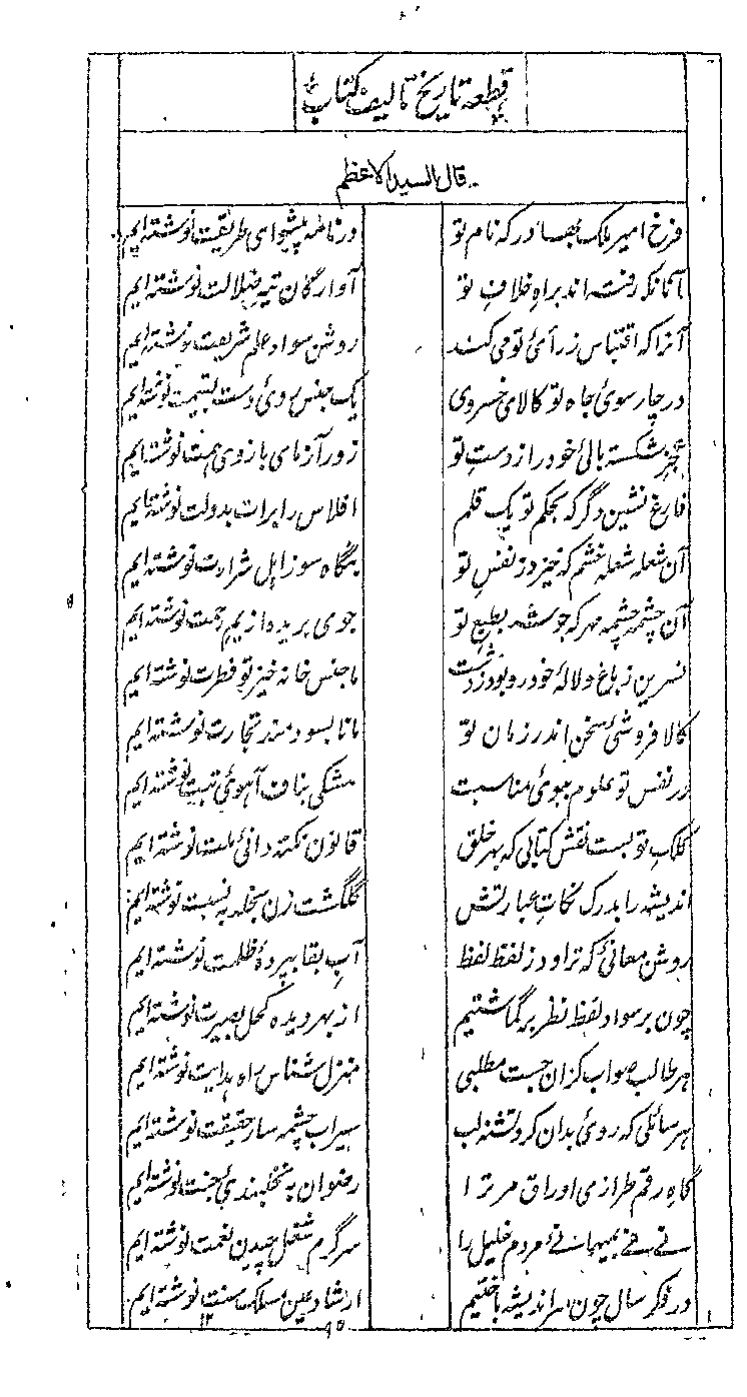 قطعه تاریخ تالیف کتاب
قال السید الاعظم
فرخ امیر ملک بهادر که نام تو در نامه پیشوای طریقت نوشته‌ایم
آنانکه رفته‌اند براه خلاف تو آوارگان تیه ضلالت نوشته‌ایم
آنرا که اقتباس ز رأی تو می کند روشن سواد علم شریعت نوشته‌ایم
در چار سوئ جاه تو کالای خسروی یک جنس روئ دست بقیمت نوشته‌ایم
عجز شکسته بالئ خود را ز دست تو زور آزمای بازوی همت نوشته‌ایم
فارغ نشین دگر که بحکم تو یک قلم افلاس را برات بدولت نوشته‌ایم
آن شعله شعله خشم که خیزد ز نفس تو بنگاه سوز اهل شرارت نوشته‌ایم
آن چشمه چشمه مهر که جوشد بطبع تو جوی بریده از یم رحمت نوشته‌ایم
نسرین ز باغ و لالهٔ خودرو بود ز دشت ما جنس خانه خیز تو فطرت نوشته‌ایم
کالا فروشئ سخن اندر زمان تو مانا بسودمند تجارت نوشته‌ایم
در نفس تو علوم ببوئ مناسبت مشکی بناف آهوئ تبت نوشته‌ایم
کلک تو بست نقش کتابی که بهر خلق قانون نکته دانئ ملت نوشته‌ایم
اندیشه را بدرک نکات عبارتش گلگشت زن بخلد به نسبت نوشته‌ایم
روشن معانئ که تراود ز لفظ لفظ آب بقا بپردهٔ ظلمت نوشته‌ایم
چون بر سواد لفظ نظر برگماشتیم از بهر دیده کحل بصیرت نوشته‌ایم
هر طالب صواب کزان جست مطلبی منزل شناس راه هدایت نوشته‌ایم
هر سائلی که روئ بدان کرد تشنه لب سیراب چشمه سار حقیقت نوشته‌ایم
گاه رقم طرازی اوراق مر ترا رضوان به نخلبندئ جنت نوشته‌ایم
نے نے بمیهمانئ مردم خلیل را سرگرم شغل چیدن نعمت نوشته‌ایم
در فکر سال چون سر اندیشه باختیم ارشاد عین مسلک سنت نوشته‌ایم